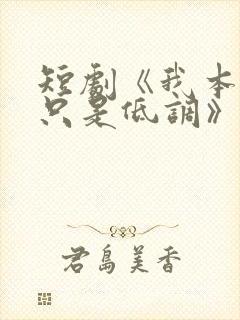 短劇《我本
只是低調》
君島美香